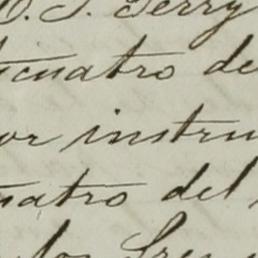 D. S. Terry
ticuatro de
or instru
uatro del
los Sres